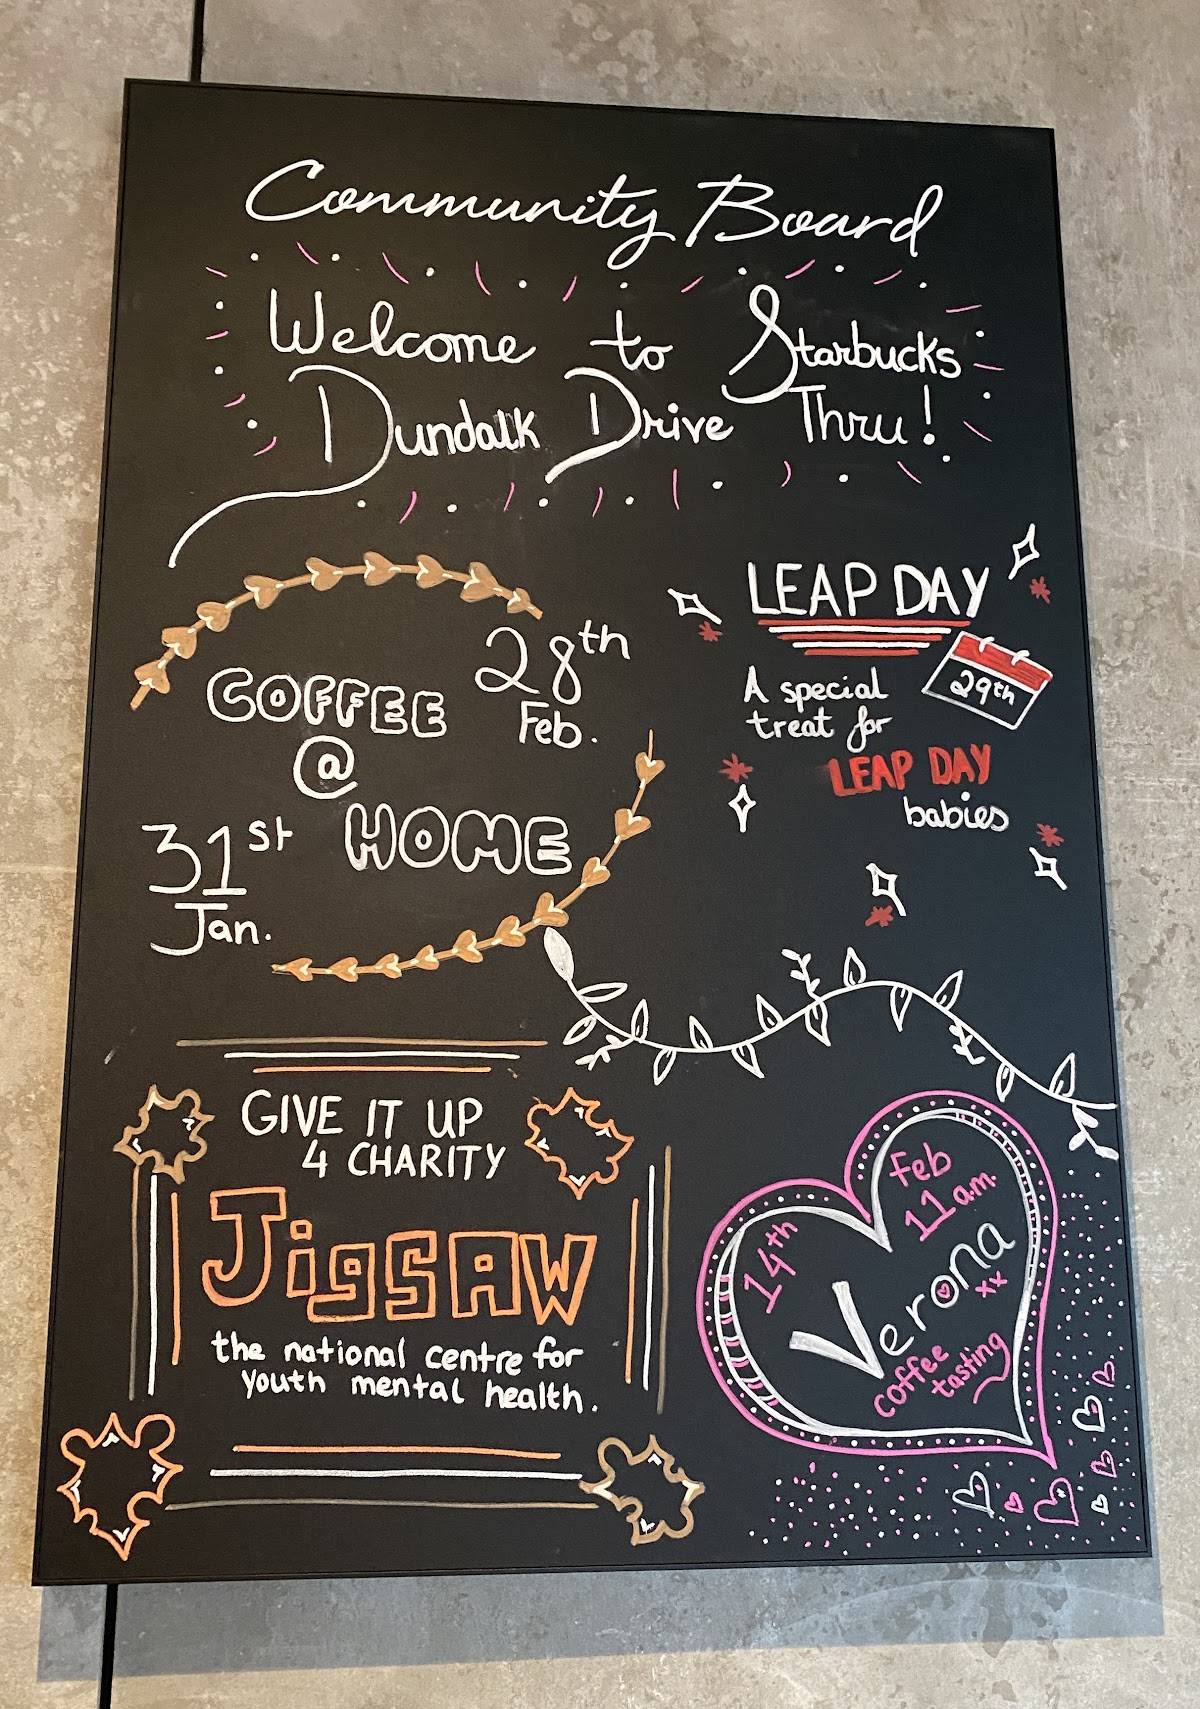 Community Board
Welcome to Starbucks
Dundalk Drive Thru!
28th
Feb.
COFFEE
@
HOME
31st
Jan.
LEAP DAY
29th
A special
treat for
LEAP DAY
babies
GIVE IT UP
4 CHARITY
JigSAW
the national centre for
youth mental health.
14th Feb
11 a.m.
Verona
xx
coffee
tasting